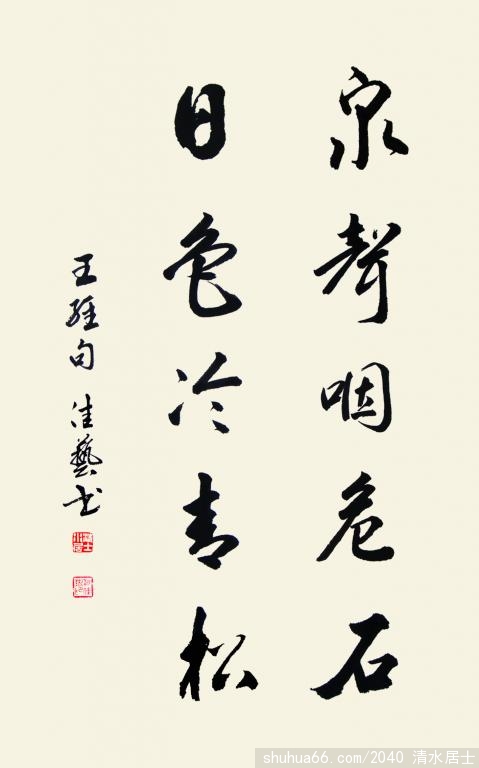 泉聲咽危石
日色冷青松
王維句 佳藝书
shuhua66.com/2040 清水居士